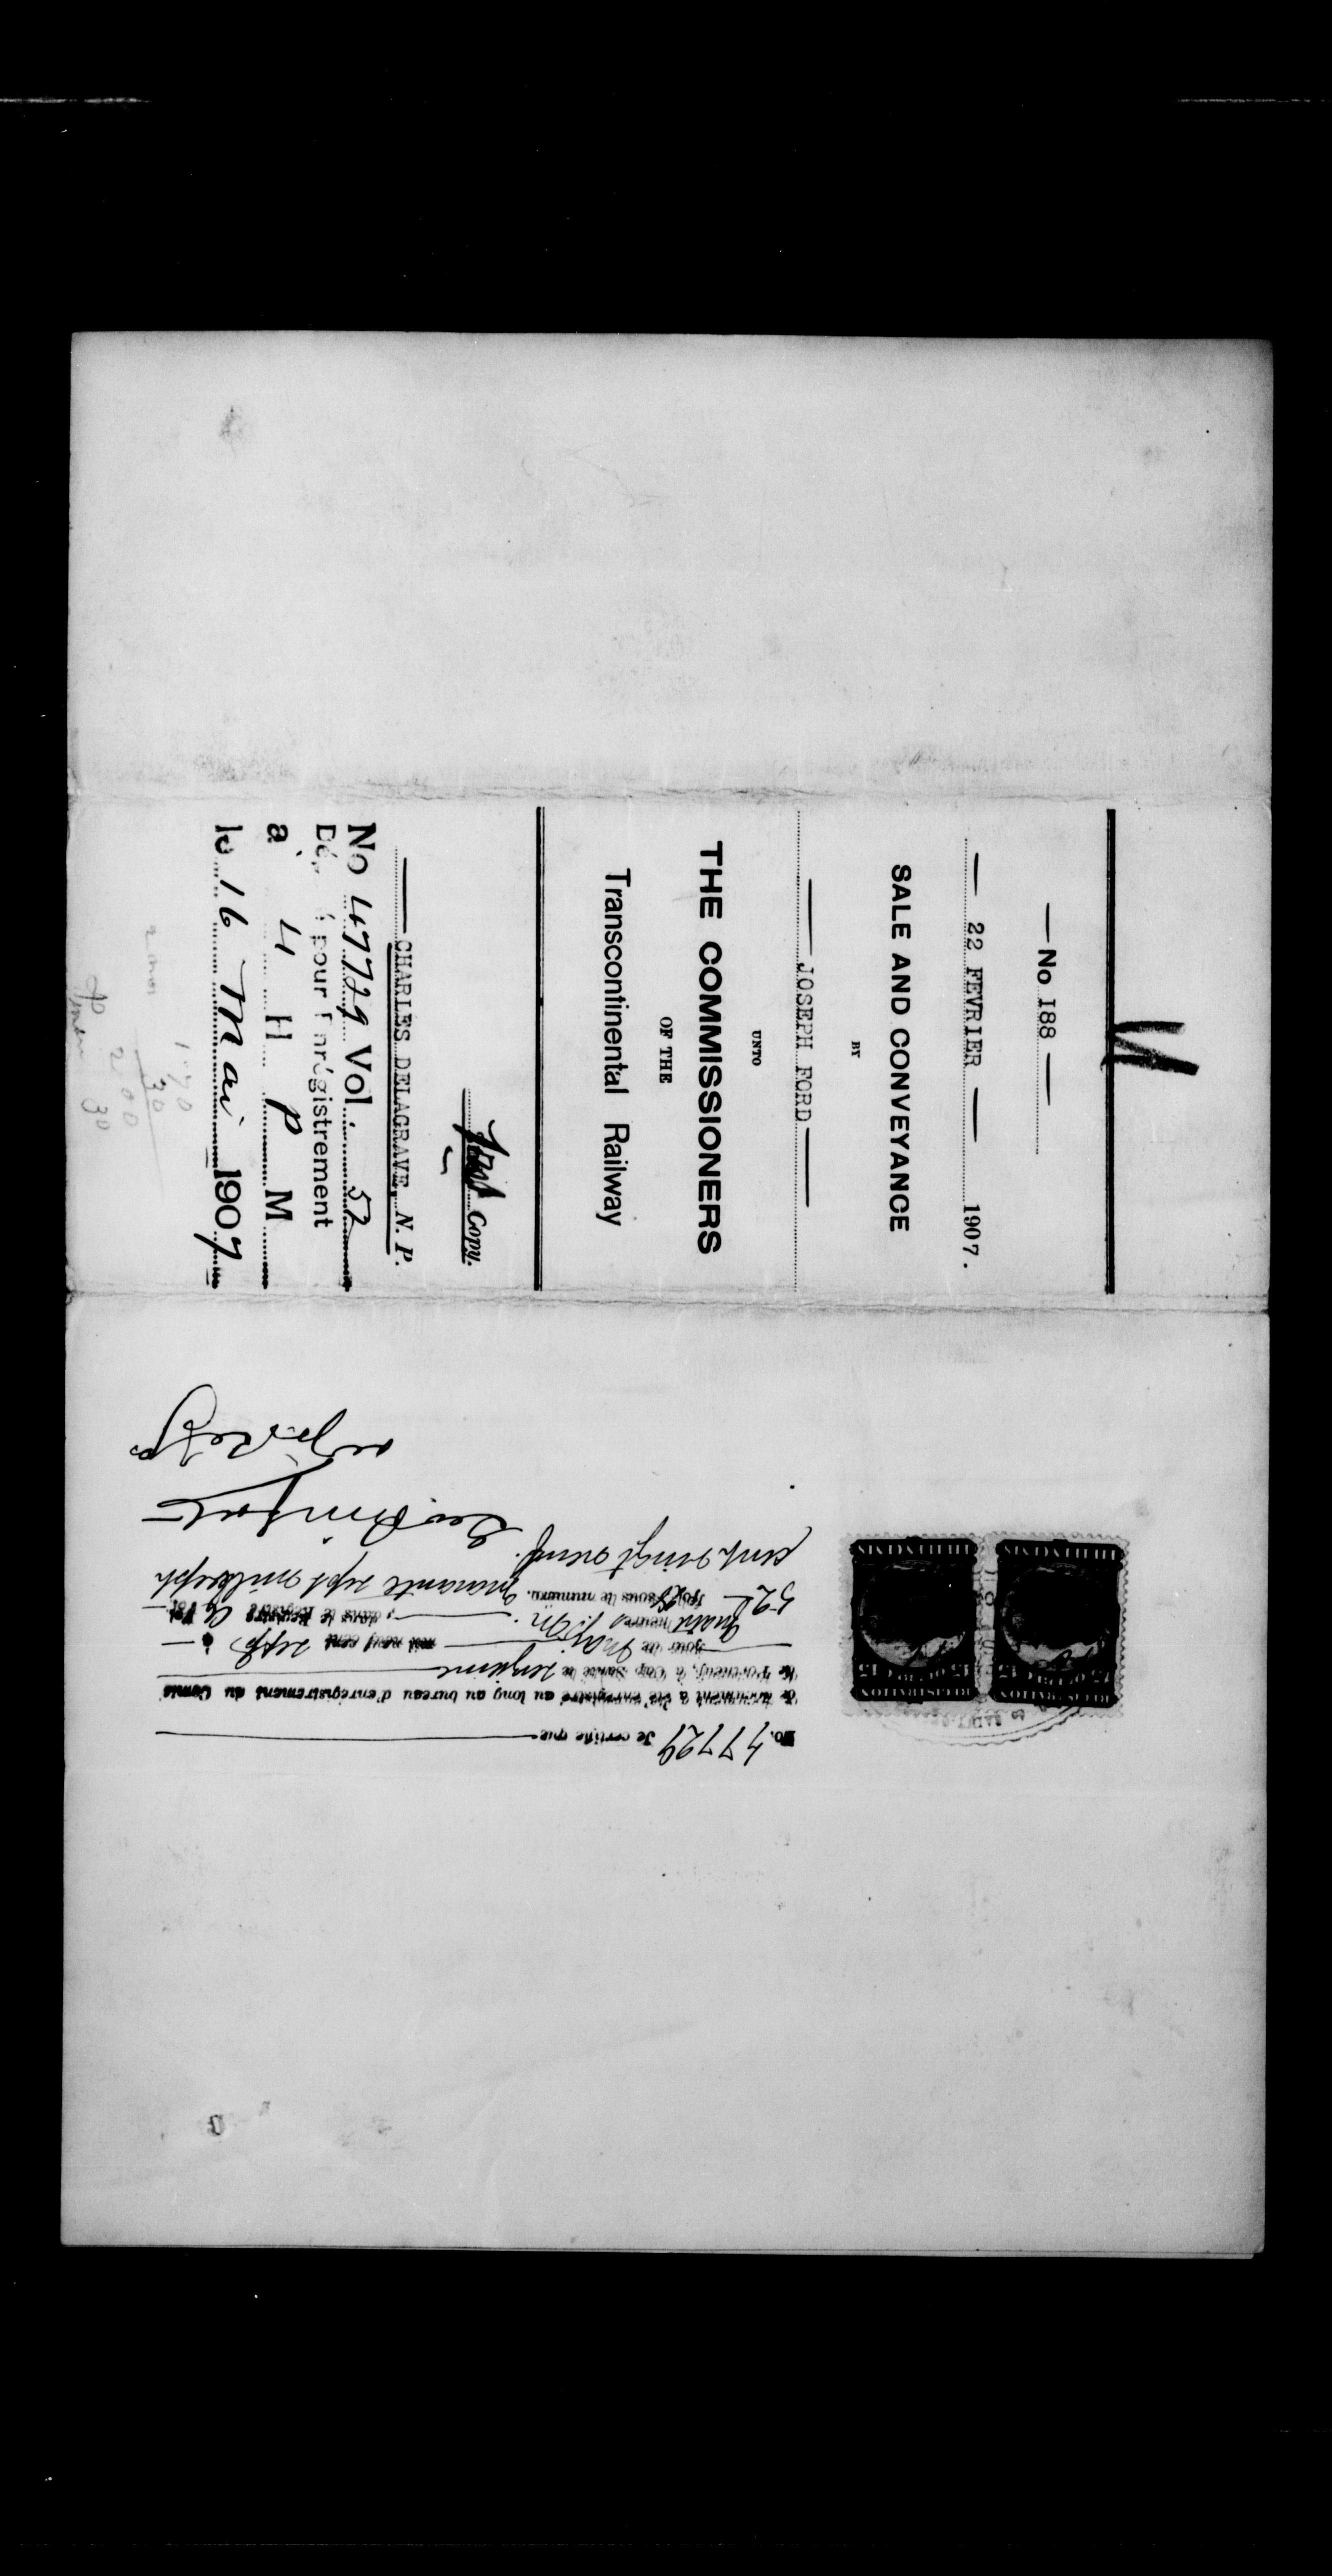 — No 188 —
— 22 FEVRIER — 1907.
SALE AND CONVEYANCE
BY
— JOSEPH FORD —
UNTO
THE COMMISSIONERS
OF THE
Transcontinental Railway
First Copy.
— CHARLES DELAGRAVE, N. P.
No 47729 Vol. 52
pour l'enrégistrement
a 4 H P M
le 16 Mai 1907
1.70
30
2 00
30
No. 47729 Je certifie que
document a été enregistré au long au bureau d'enregistrement du Comté
de Portneuf, à Cap Santé le seizième
jour de May mil neuf cent sept à
quatre heures P.M. dans le Registre B Vol.
52 sous le numéro. quarante sept mille sept
cent vingt neuf.
REGISTRATION
REGISTRATION